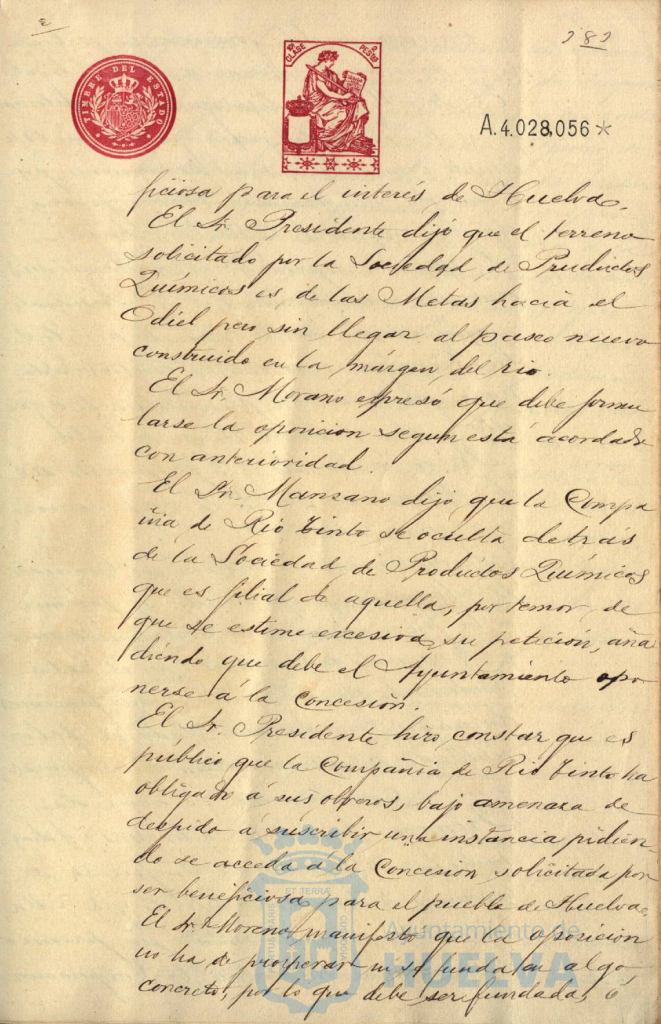 282
TIMBRE DEL ESTADO
CLASE
PESETAS
A.4.028,056*
ficiosa para el interés de Huelva.
El Sr. Presidente dijó que el terreno
solicitado por la Sociedad de Productos
Químicos es de las Metas hacia el
Odiel pero sin llegar al paseo nuevo
construido en la márgen del rio.
El Sr. Morano expresó que debe formu
larse la oposicion segun está acordado
con anterioridad.
El Sr. Manzano dijó que la Compa
ñia de Rio Tinto se oculta detrás
de la Sociedad de Productos Químicos
que es filial de aquella, por temor de
que se estime excesiva su petición, aña
diendo que debe el Ayuntamiento opo
nerse á la Concesión.
El Sr. Presidente hizo constar que es
público que la Compañia de Rio Tinto ha
obligado á sus obreros, bajo amenaza de
despido á suscribir una instancia pidien
do se acceda á la Concesión solicitada por
ser beneficiosa para el pueblo de Huelva.
El Sr. Moreno manifestó que la oposición
no ha de prosperar ni se funda en algo
concreto, por lo que debe ser fundada, ó
Ayuntamiento de
HUELVA